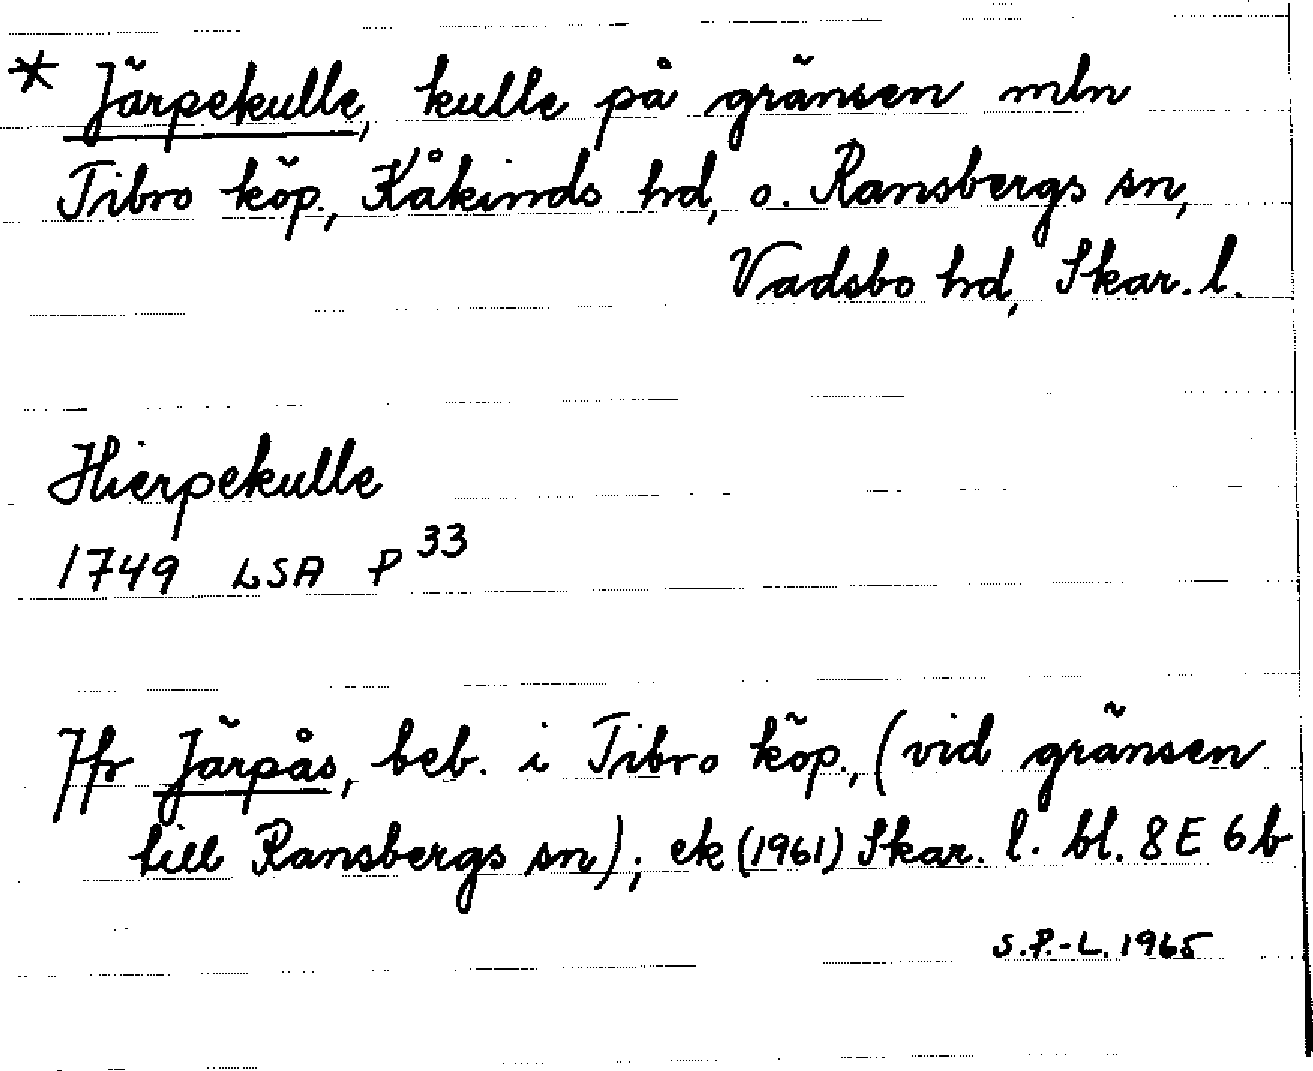 * Järpekulle, kulle på gränsen mln
Tibro köp., Kåkinds hd, o. Ransbergs sn,
Vadsbo hd, Skar. l.
Hierpekulle
1749 LSA P 33
Jfr Järpås, beb. i Tibro köp., (vid gränsen
till Ransbergs sn); ek (1961) Skar. l. bl. 8E 6b
S.P.-L. 1965